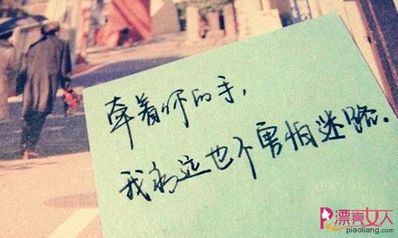 牵着你的手，
我永远也不害怕迷路.
漂亮女人
piaoliang.com